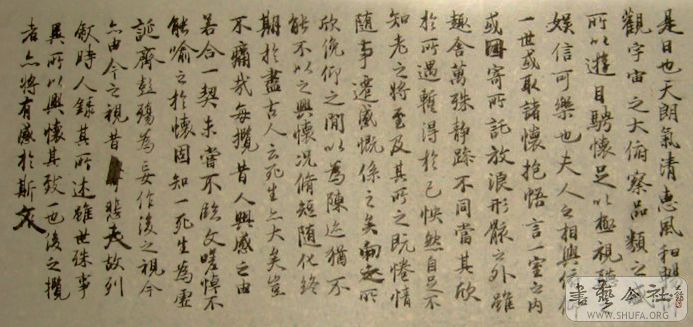 是日也天朗氣清惠風和暢
觀宇宙之大俯察品類之
所以遊目騁懷足以極視聽
娛信可樂也夫人之相與俯仰
一世或取諸懷抱悟言一室之內
或因寄所託放浪形骸之外雖
趣舍萬殊靜躁不同當其欣
於所遇暫得於己怏然自足不
知老之將至及其所之既惓情
隨事遷感慨係之矣向之所
欣俛仰之閒以為陳迹猶不
能不以之興懷況脩短隨化終
期於盡古人云死生亦大矣豈
不痛哉每攬昔人興感之由
若合一契未嘗不臨文嗟悼不
能喻之於懷固知一死生為虛
誕齊彭殤為妄作後之視今
亦由今之視昔悲夫故列
敘時人錄其所述雖世殊事
異所以興懷其致一也後之攬
者亦將有感於斯文
書藝公社
WWW.SHUFA.ORG